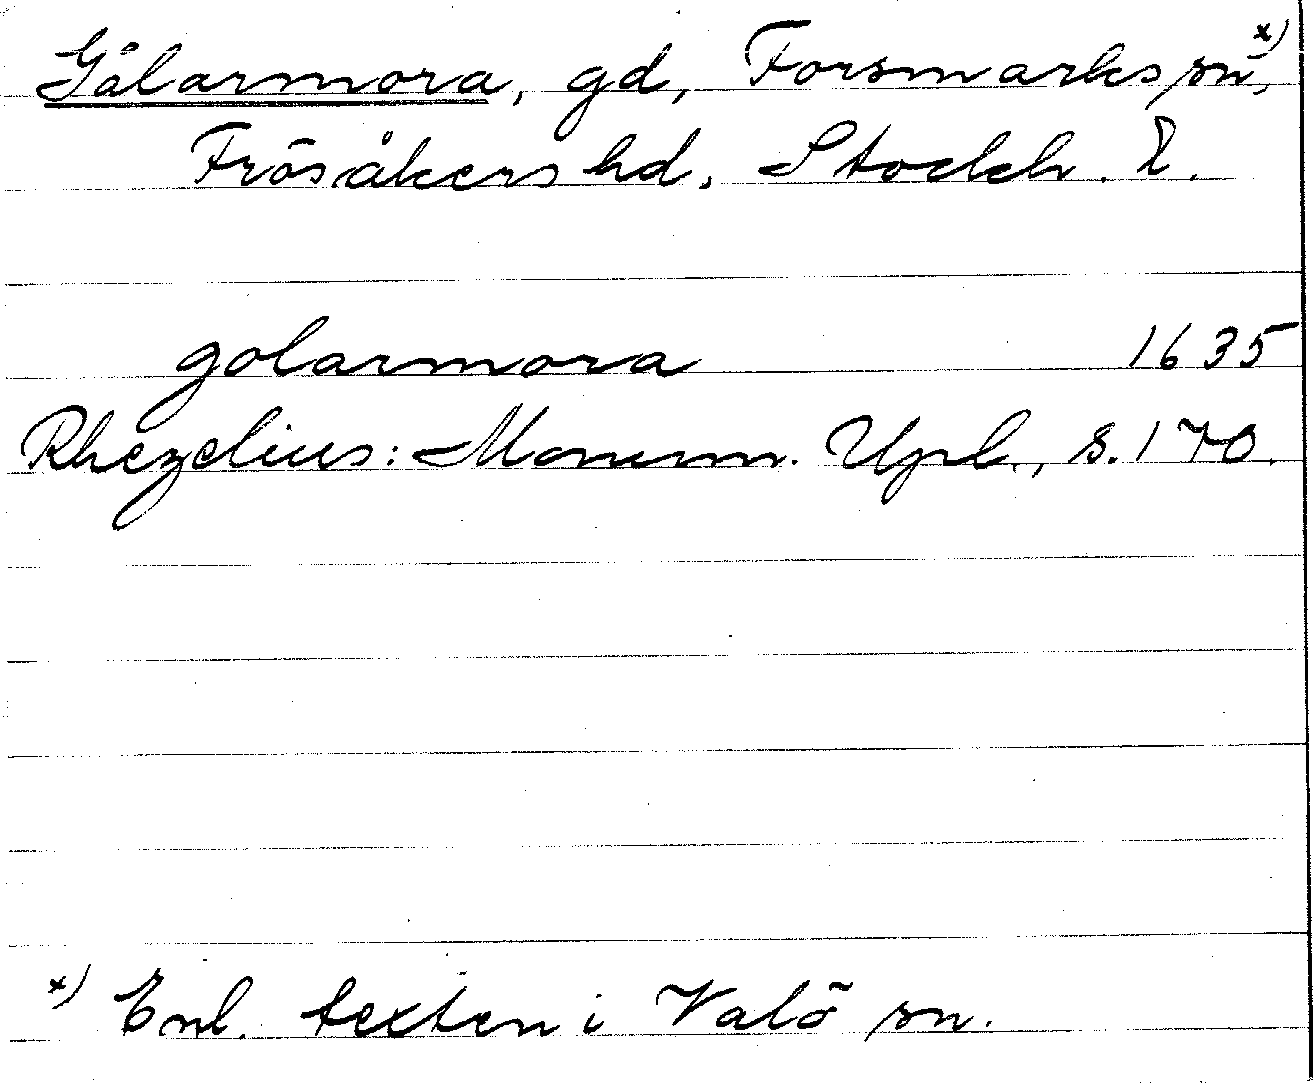 Gålarmora, gd, Forsmarks sn, x)
Frösåkers hd, Stockh. l.
golarmora 1635
Rhezelius: Monum. Upl., s. 170.
x) Enl. texten i Valö sn.